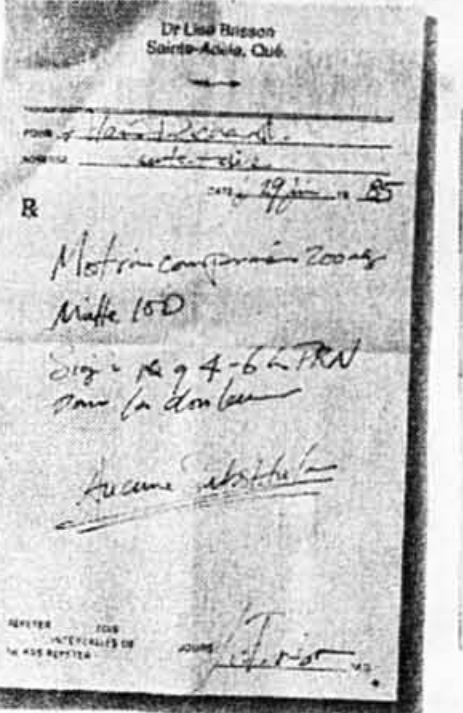 Dr Lise Brisson
Sainte-Adèle, Qué.
POUR
ADRESSE
DATE 29 juin 19 85
℞
Motrin comprimés 200mg
Mitte 100
Sig: q 4-6 h PRN
pour la douleur
Aucune substitution
RÉPÉTER FOIS
INTERVALLES DE JOURS
NE PAS RÉPÉTER M.D.